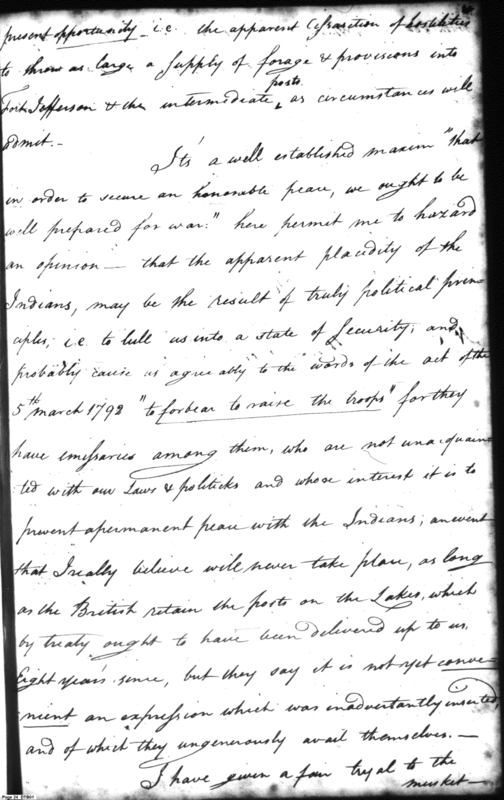 present opportunity i.e. the apparent Cessation of hostilities
to throw as large a supply of forage & provisions into
posts
Fort Jefferson & the intermediate, as circumstances will
admit.—
It's a well established maxim "that
in order to secure an honorable peace, we ought to be
well prepared for war:" here permit me to hazard
an opinion — that the apparent placidity of the
Indians, may be the result of truly political prin-
ciples, i.e. to lull us into a state of Security; and,
probably cause us agreeably to the words of the act of the
5th march 1792 "to forbear to raise the troops" for they
have emissaries among them, who are not unacquain-
ted with our Laws & politicks and whose interest it is to
prevent a permanent peace with the Indians; an event
that I really believe will never take place, as long
as the British retain the posts on the Lakes, which
by treaty ought to have been delivered up to us,
Eight years since, but they say it is not yet conve-
nient an expression which was inadvertantly inserted,
and of which they ungenerously avail themselves.—
I have given a fair tryal to the
musket—